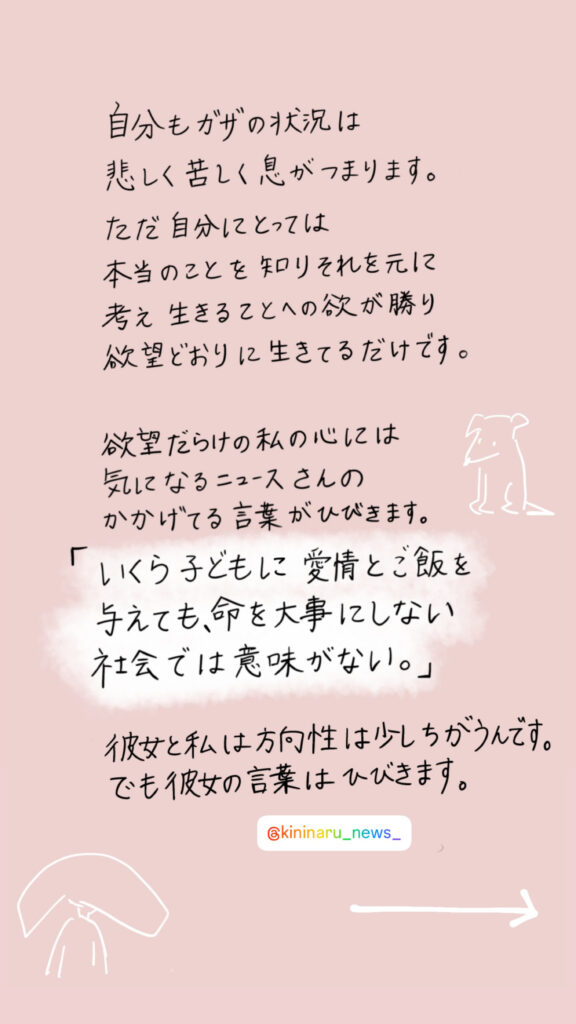 自分もガザの状況は
悲しく苦しく息がつまります。
ただ自分にとっては
本当のことを知りそれを元に
考え生きることへの欲が勝り
欲望どおりに生きてるだけです。
欲望だらけの私の心には
気になるニュースさんの
かかげてる言葉がひびきます。
「いくら子どもに愛情とご飯を
与えても、命を大事にしない
社会では意味がない。」
彼女と私は方向性は少しちがうんです。
でも彼女の言葉はひびきます。
@kininaru_news_